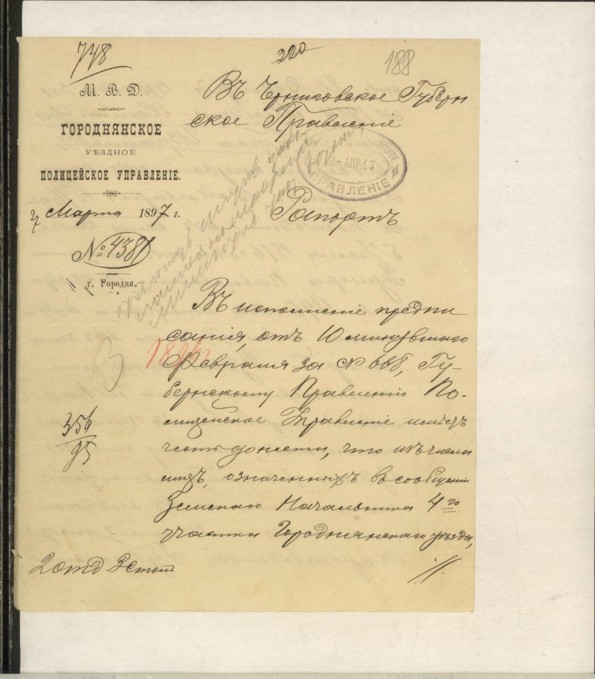 748
220
188
М. В. Д.
ГОРОДНЯНСКОЕ
УѢЗДНОЕ
ПОЛИЦЕЙСКОЕ УПРАВЛЕНІЕ.
27 Марта 1897 г.
№ 4381
г. Городня.
Въ Черниговское Губерн
ское Правленіе
АПР. 97
ПРАВЛЕНІЕ
Рапортъ
Въ исполненіе предпи
санія, отъ 10 минувшаго
Февраля за № 666, Гу-
бернскому Правленію По-
лицейское Управленіе имѣетъ
честь донести, что изъ числа
лицъ, означенныхъ въ сообщеніи
Земскаго Начальника 4 го
участка Городнянскаго уѣзда,
356
95
2 отд